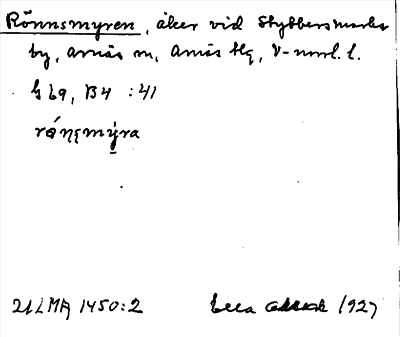 Rönnsmyren, åker vid Stybbersmarks
by, Arnäs sn, Arnäs tlg, V-norrl. l.
G 69, B4 :41
ró̜ṇṣmy̌ra
ULMA 1450:2 1927